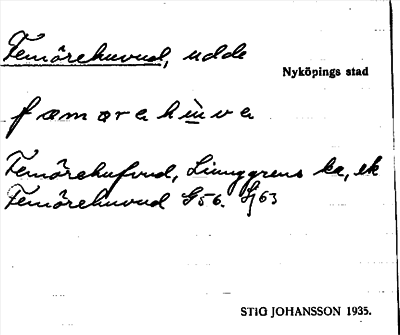 Femörehuvud, udde
Nyköpings stad
fæmørahùva
Femörehufvud, Ljunggrens ka, ek
Femörehuvud G56. Sj63
STIG JOHANSSON 1935.